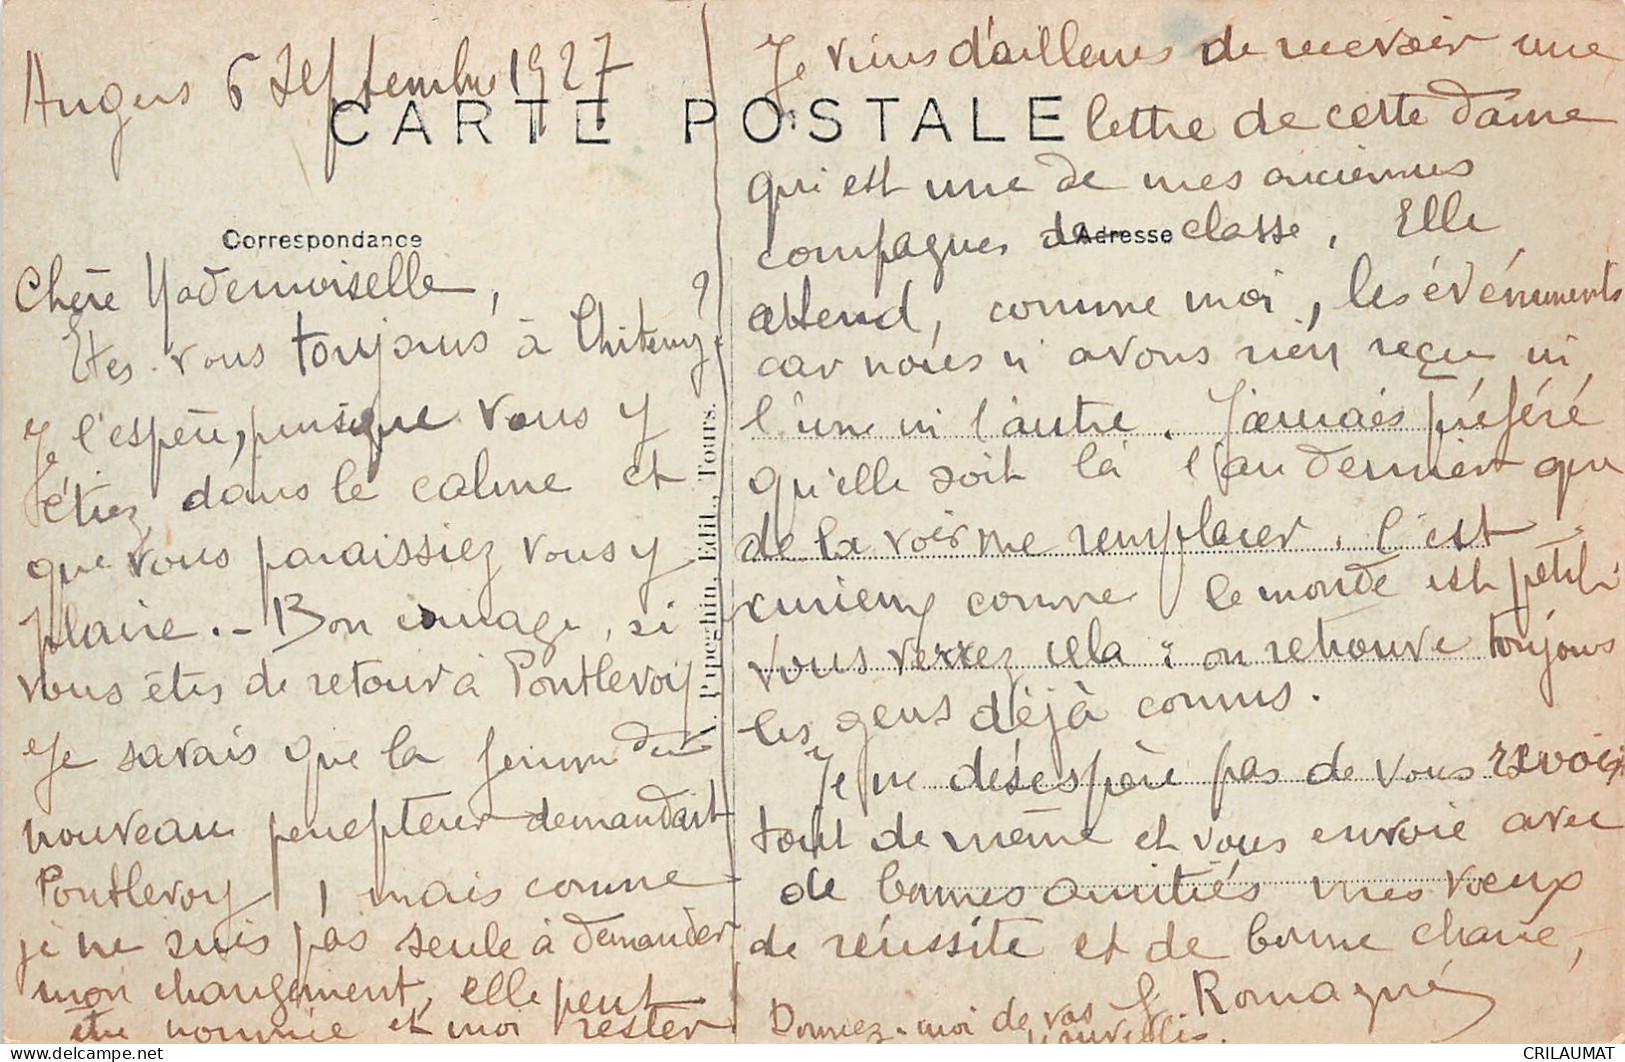 Angers 6 Septembre 1927
CARTE POSTALE
Correspondance
Chère Mademoiselle,
Etes-vous toujours à Chitenay?
Je l'espère, puisque vous y
étiez dans le calme et
que vous paraissiez vous y
plaire. - Bon courage, si
vous êtes de retour à Pontlevoy
Je savais que la femme du
nouveau percepteur demandait
Pontlevoy, mais comme
je ne suis pas seule à demander
mon changement, elle peut
être nommée et moi rester
A. Papeghin, Edit., Tours.
Adresse
Je viens d'ailleurs de recevoir une
lettre de cette dame
qui est une de mes anciennes
compagnes de classe. Elle
attend, comme moi, les événements
car nous n'avons rien reçu ni
l'une ni l'autre. J'aimais préféré
qu'elle soit là l'an dernier que
de la voir me remplacer. C'est
curieux comme le monde est petit.
Vous verrez cela : on retrouve toujours
les gens déjà connus.
Je ne désespère pas de vous revoir
tout de même et vous envoie avec
de bonnes amitiés mes voeux
de réussite et de bonne chance,
J. Romagné
Donnez-moi de vos
nouvelles.
CRILAUMAT